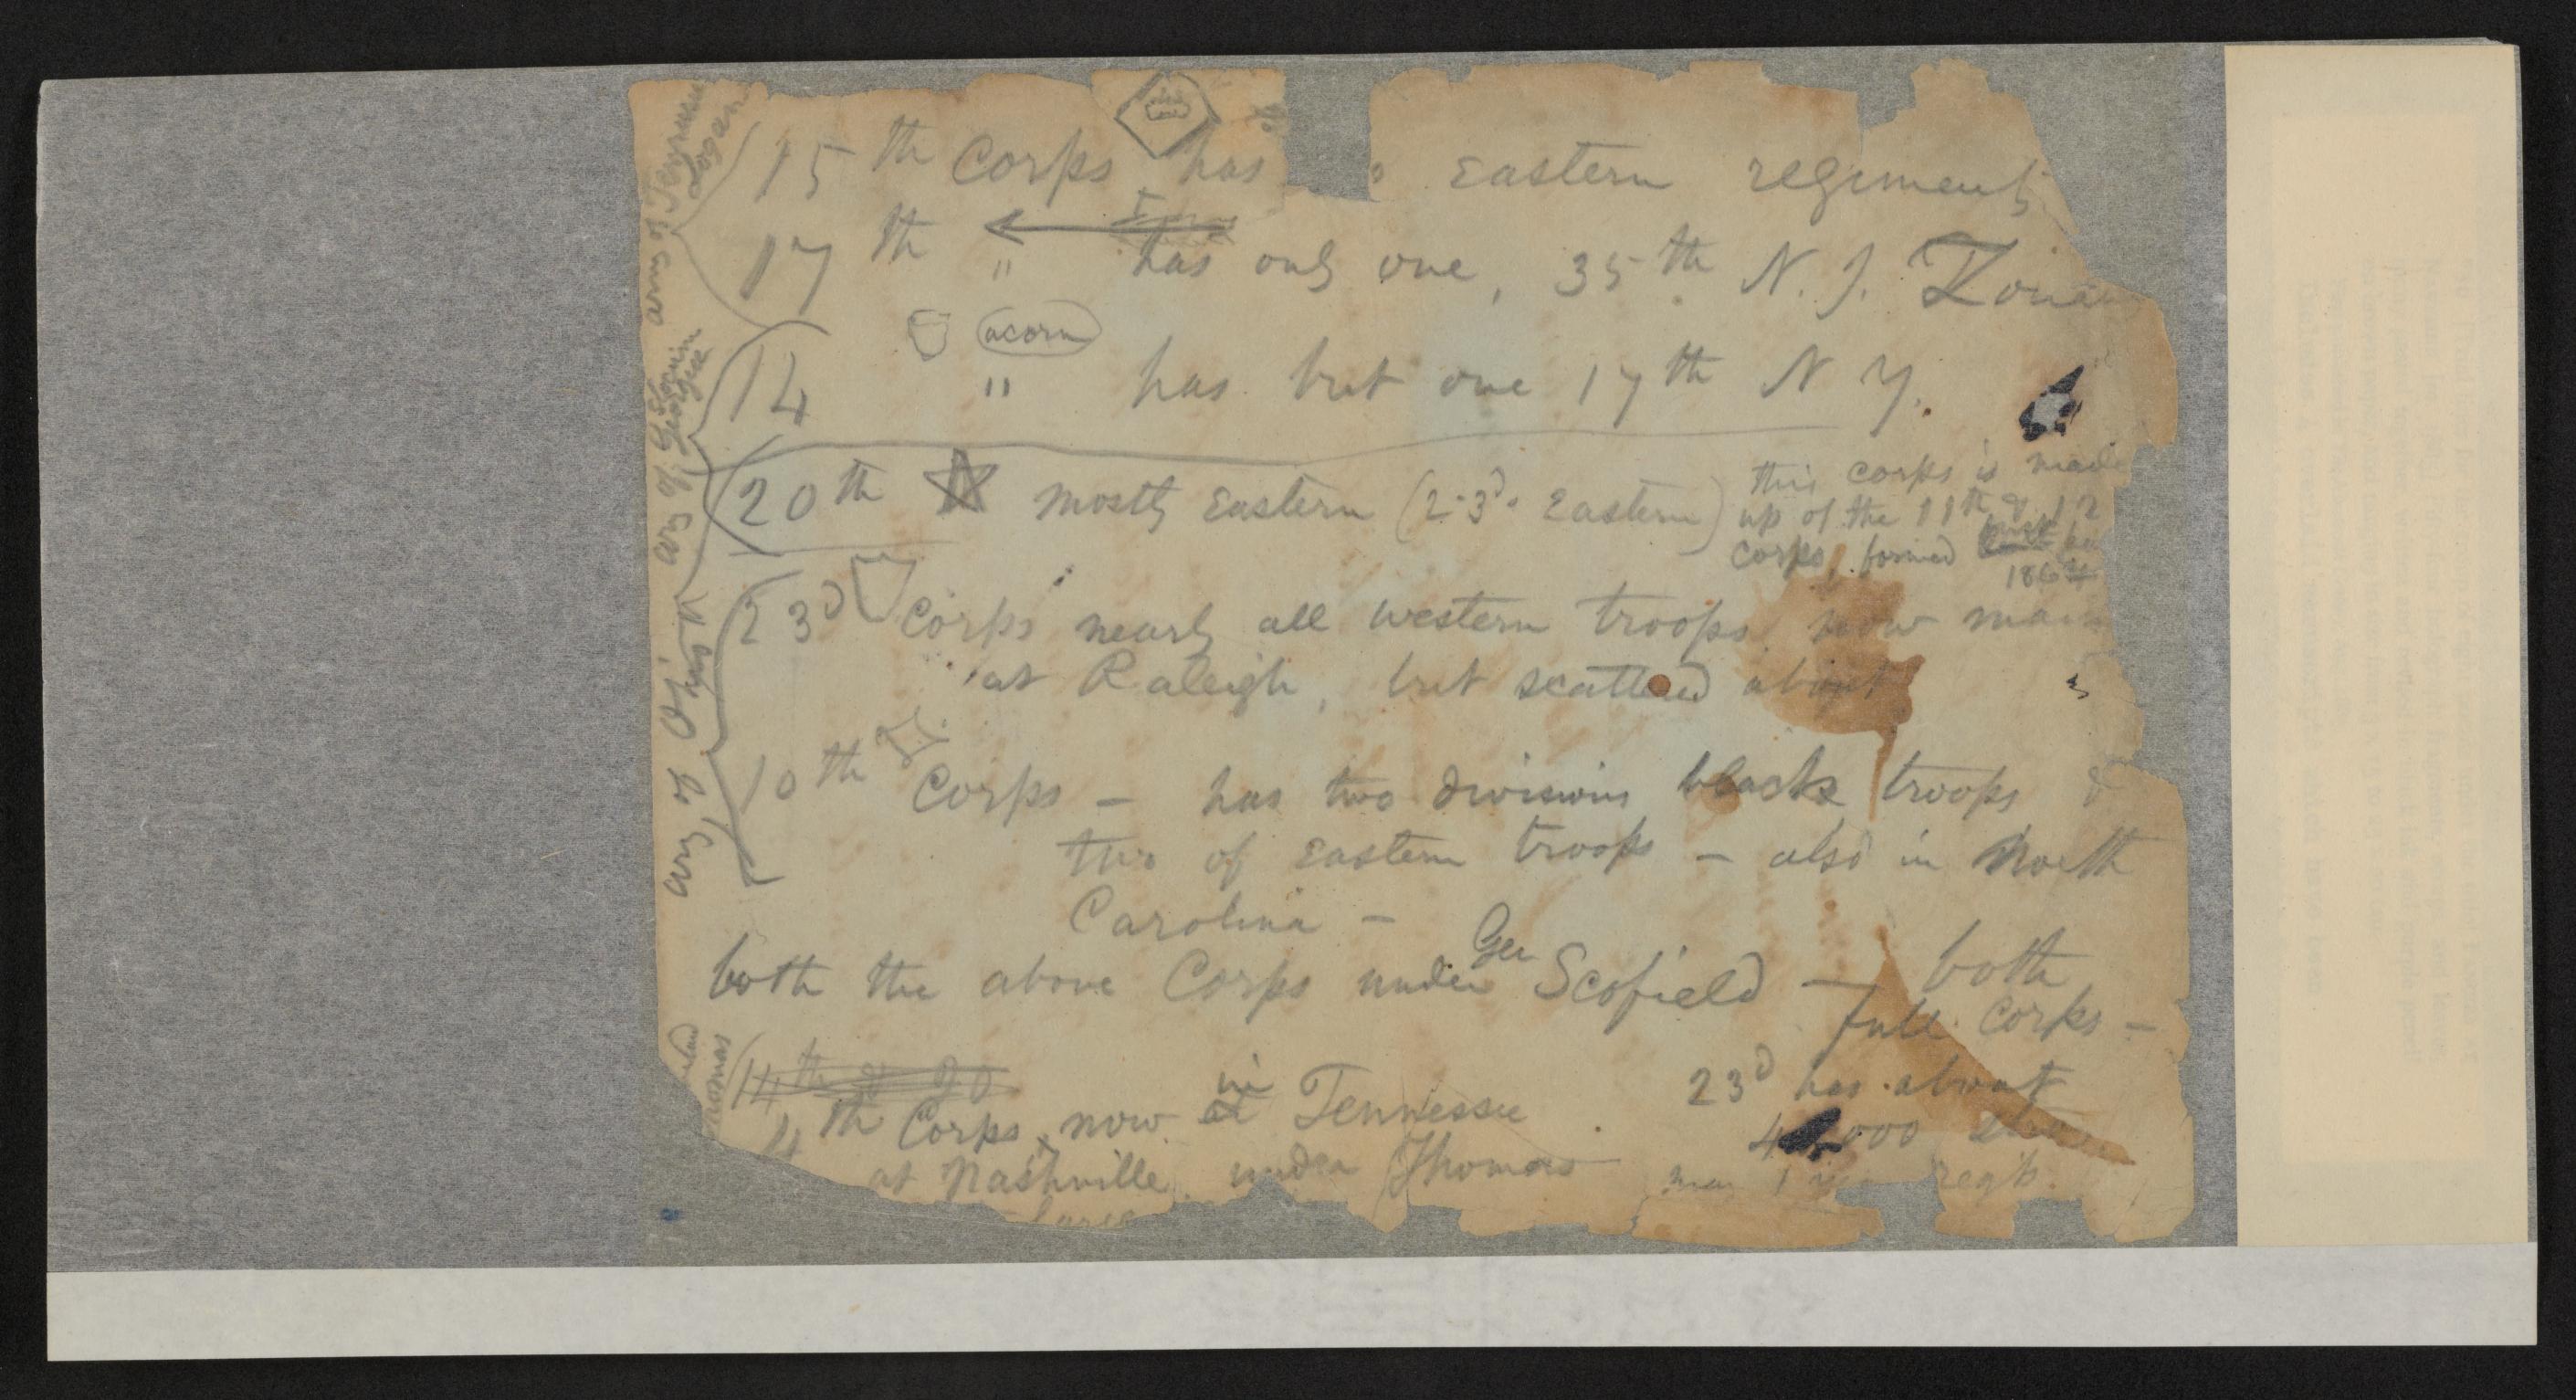 army of Tennessee
Logan
15th Corps has eastern regiments
17th " has only one, 35th N. J.
acorn
army of Georgia
14 " has but one 17th N Y.
20th mostly Eastern (2-3ds Eastern)
this corps is made
up of the 11th & 12
corps, formed
186
army of Ohio
23d Corps nearly all western troops now
at Raleigh, but scattered about
10th Corps – has two divisions black troops &
two of eastern troops – also in North
Carolina –
both the above Corps under Gen Scofield — both
full Corps –
23d has about
000
regts.
14th & 20
4th Corps, now in Tennessee
at Nashville under Thomas